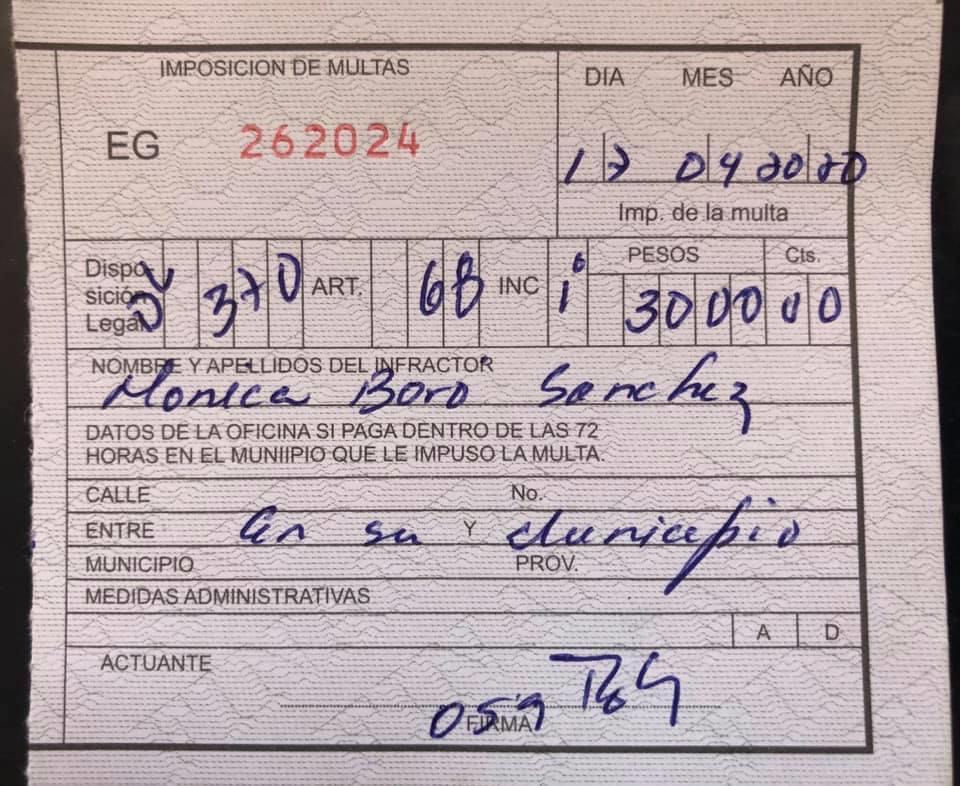 IMPOSICION DE MULTAS
DIA MES AÑO
EG 262024
17 04 2020
Imp. de la multa
Dispo
sición
Legal
DL 370 ART. 68 INC i
PESOS Cts.
3000 00
NOMBRE Y APELLIDOS DEL INFRACTOR
Monica Baro Sanchez
DATOS DE LA OFICINA SI PAGA DENTRO DE LAS 72
HORAS EN EL MUNIIPIO QUE LE IMPUSO LA MULTA.
CALLE No.
ENTRE En su Y Municipio
MUNICIPIO PROV.
MEDIDAS ADMINISTRATIVAS
A D
ACTUANTE
059
FIRMA